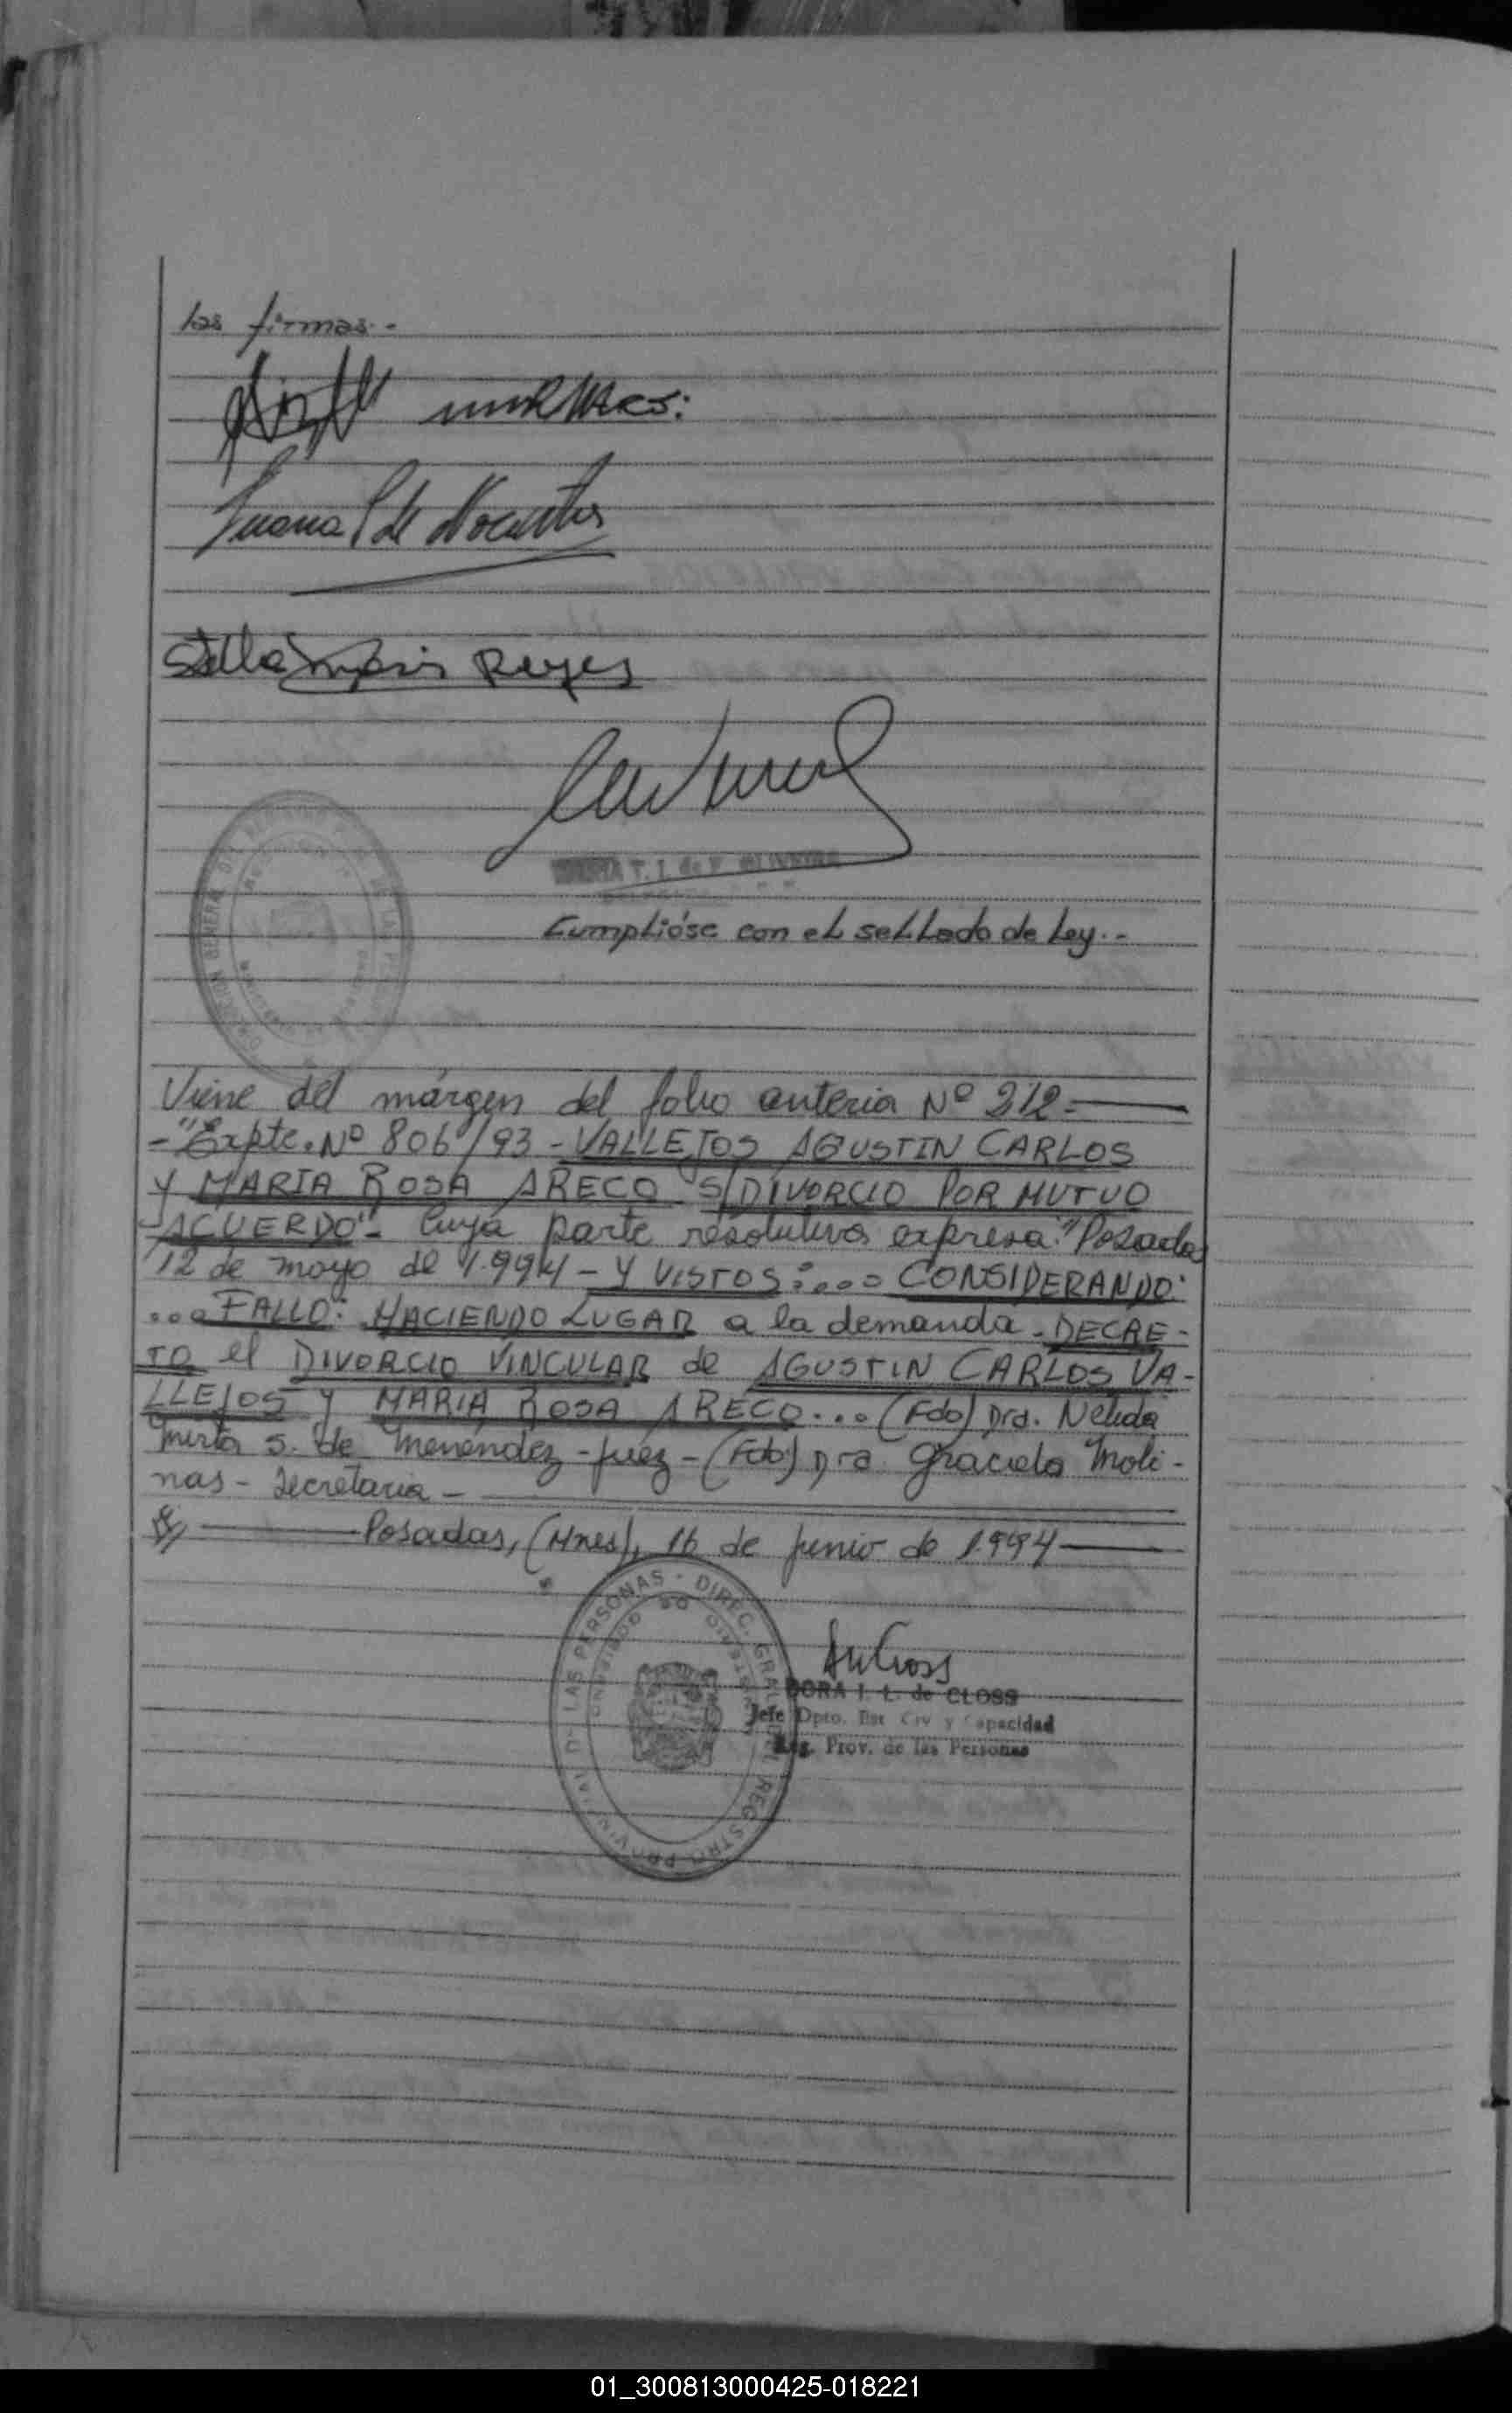 las firmas.-
Juana P de Nocentos
Stella Maris Reyes
T. I. de F. OLIVEIRA
Cumplióse con el sellado de Ley.-
Viene del márgen del folio anterior Nº 212.-
-"Expte. Nº 806/93 - VALLEJOS AGUSTIN CARLOS
Y MARIA ROSA ARECO S/DIVORCIO POR MUTUO
ACUERDO"- Cuya parte resolutiva expresa: "Posadas
12 de mayo de 1.994 - Y VISTOS:... CONSIDERANDO:
...FALLO: HACIENDO LUGAR a la demanda - DECRE-
TO el DIVORCIO VINCULAR de AGUSTIN CARLOS VA-
LLEJOS Y MARIA ROSA ARECO... (Fdo) Dra. Nelida
Mirta S. de Menéndez - Juez - (Fdo) Dra. Graciela Moli-
nas - Secretaria -
Posadas, (Mnes), 16 de Junio de 1.994
DIREC. GRAL. DEL REGISTRO PROVINCIAL DE LAS PERSONAS
DORA I. L. de CLOSS
Jefe Dpto. Est. Civ y Capacidad
Reg. Prov. de las Personas
01_300813000425-018221